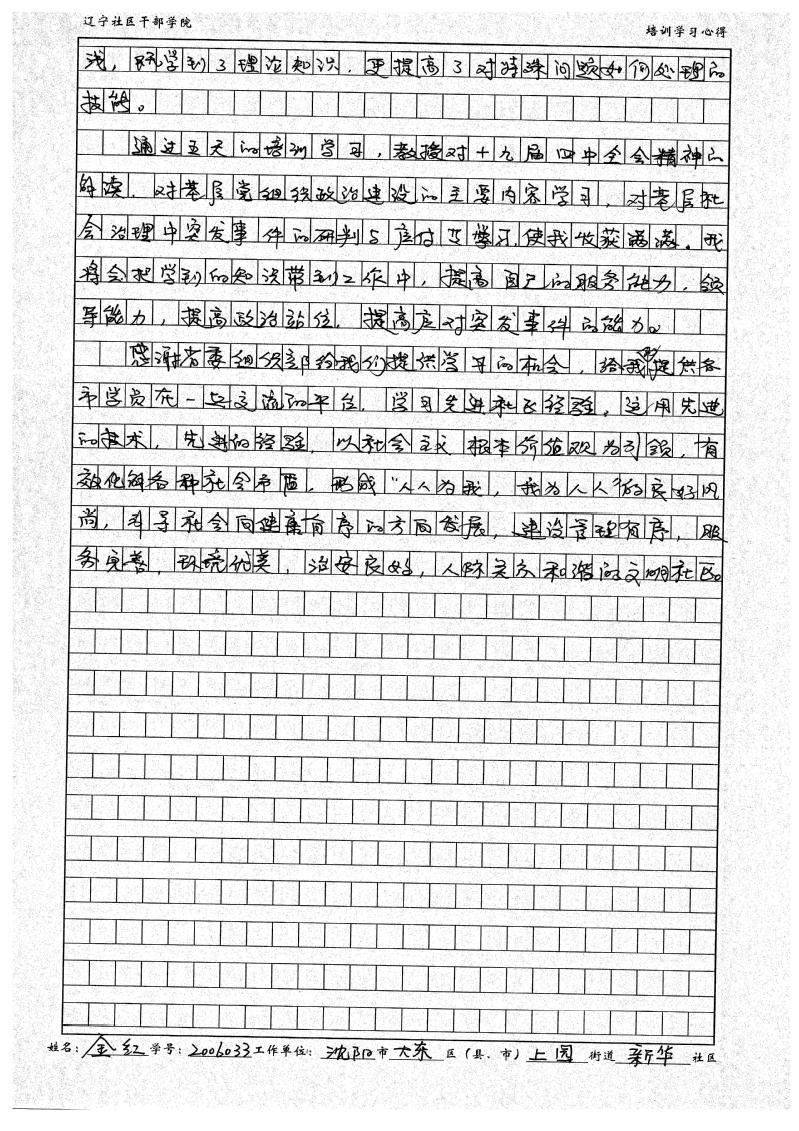 辽宁社区干部学院
培训学习心得
浅，既学到了理论知识，更提高了对特殊问题如何处理的
技能。
通过五天的培训学习，教授对十九届四中全会精神的
解读，对基层党组织政治建设的主要内容学习，对基层社
会治理中突发事件的研判与应付等学习，使我收获满满。我
将会把学到的知识带到工作中，提高自己的服务能力，领
导能力，提高政治站位，提高应对突发事件的能力。
感谢省委组织部给我们提供学习的机会，给我们提供各
市学员在一起交流的平台，学习先进社区经验，运用先进
的技术，先进的经验，以社会主义根本价值观为引领，有
效化解各种社会矛盾，形成“人人为我，我为人人”的良好风
尚，引导社会向健康有序的方向发展，建设管理有序，服
务完善，环境优美，治安良好，人际关系和谐的文明社区。
姓名：金红 学号：2006033 工作单位：沈阳市大东区（县、市）上园街道新华社区